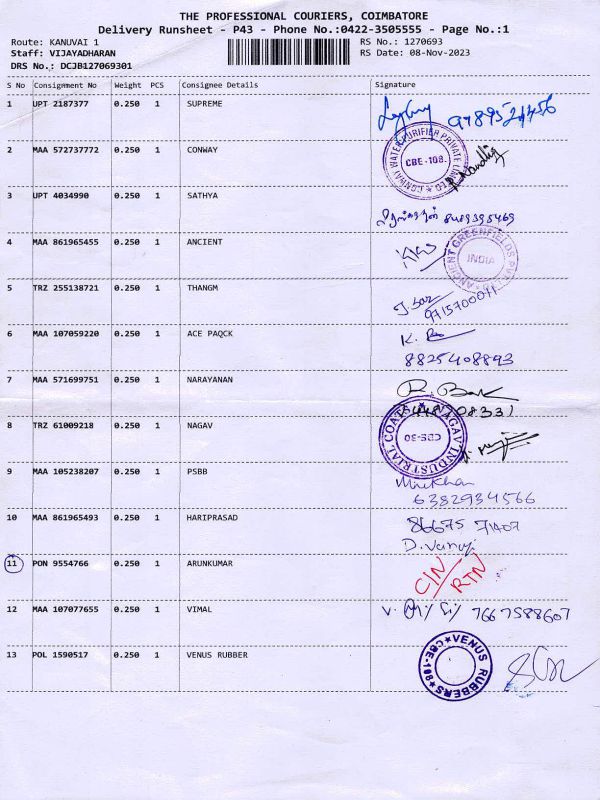 THE PROFESSIONAL COURIERS, COIMBATORE
Delivery Runsheet - P43 - Phone No.:0422-3505555 - Page No.:1
Route: KANUVAI 1 RS No.: 1270693
Staff: VIJAYADHARAN RS Date: 08-Nov-2023
DRS No.: DCJB127069301
S No Consignment No Weight PCS Consignee Details Signature
1 UPT 2187377 0.250 1 SUPREME
2 MAA 572737772 0.250 1 CONWAY
CONWAY WATER PURIFIER PRIVATE LIMITED
CBE-108.
3 UPT 4034990 0.250 1 SATHYA
4 MAA 861965455 0.250 1 ANCIENT
ANCIENT GREENFIELDS
INDIA
5 TRZ 255138721 0.250 1 THANGM
9715700011
6 MAA 107059220 0.250 1 ACE PAQCK
8825408893
7 MAA 571699751 0.250 1 NARAYANAN
8 TRZ 61009218 0.250 1 NAGAV
NAGAV INDUSTRIAL COATS
CBE-30
9 MAA 105238207 0.250 1 PSBB
6382934566
10 MAA 861965493 0.250 1 HARIPRASAD
86675 71407
11 PON 9554766 0.250 1 ARUNKUMAR
CIN/
RTN
12 MAA 107077655 0.250 1 VIMAL 7667588607
13 POL 1590517 0.250 1 VENUS RUBBER
VENUS RUBBERS
CBE-108